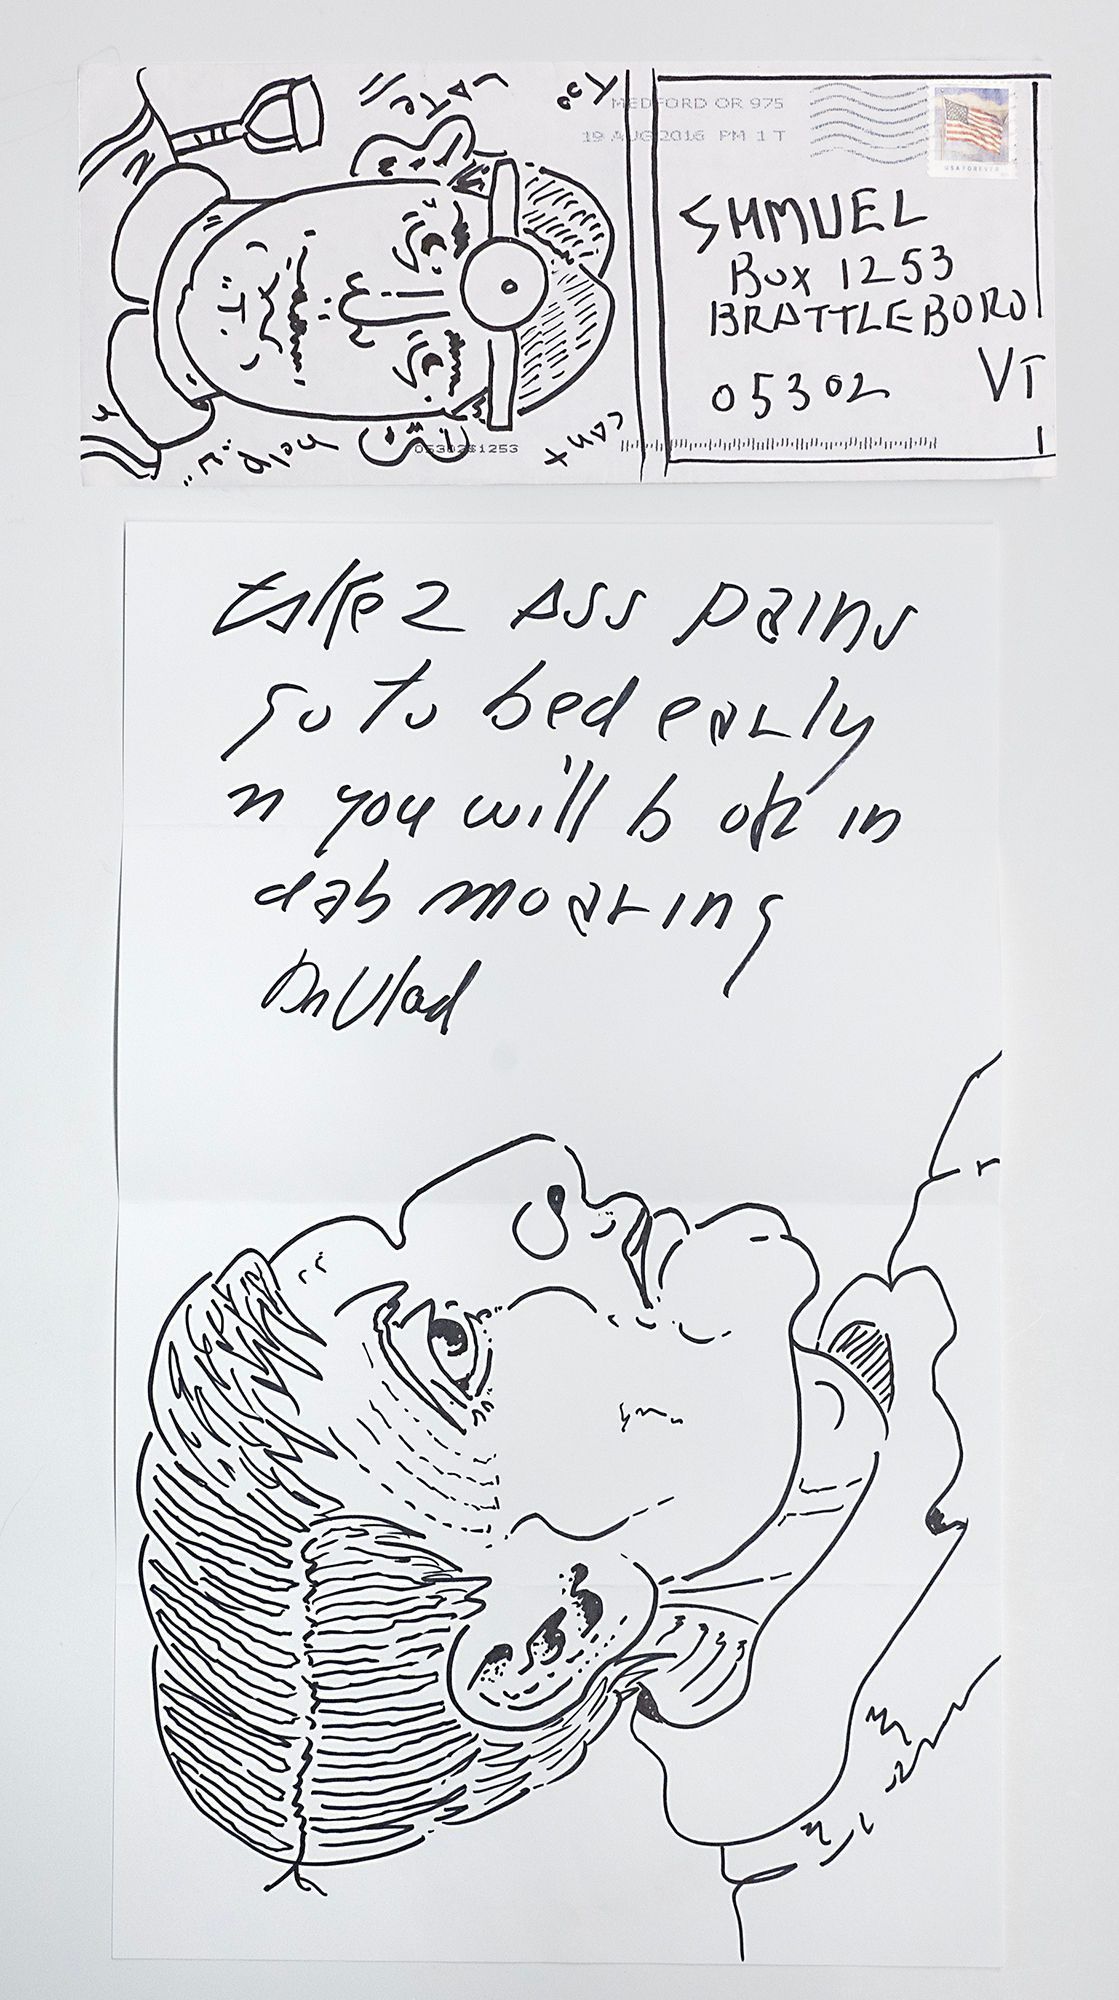 MEDFORD OR 975
19 AUG 2016 PM 1 T
USA FOREVER
SHMUEL
Box 1253
BRATTLEBORO
VT
05302
05302$1253
take 2 Ass pains
go to bed early
n you will b ok in
dab moaring
Dr Vlad